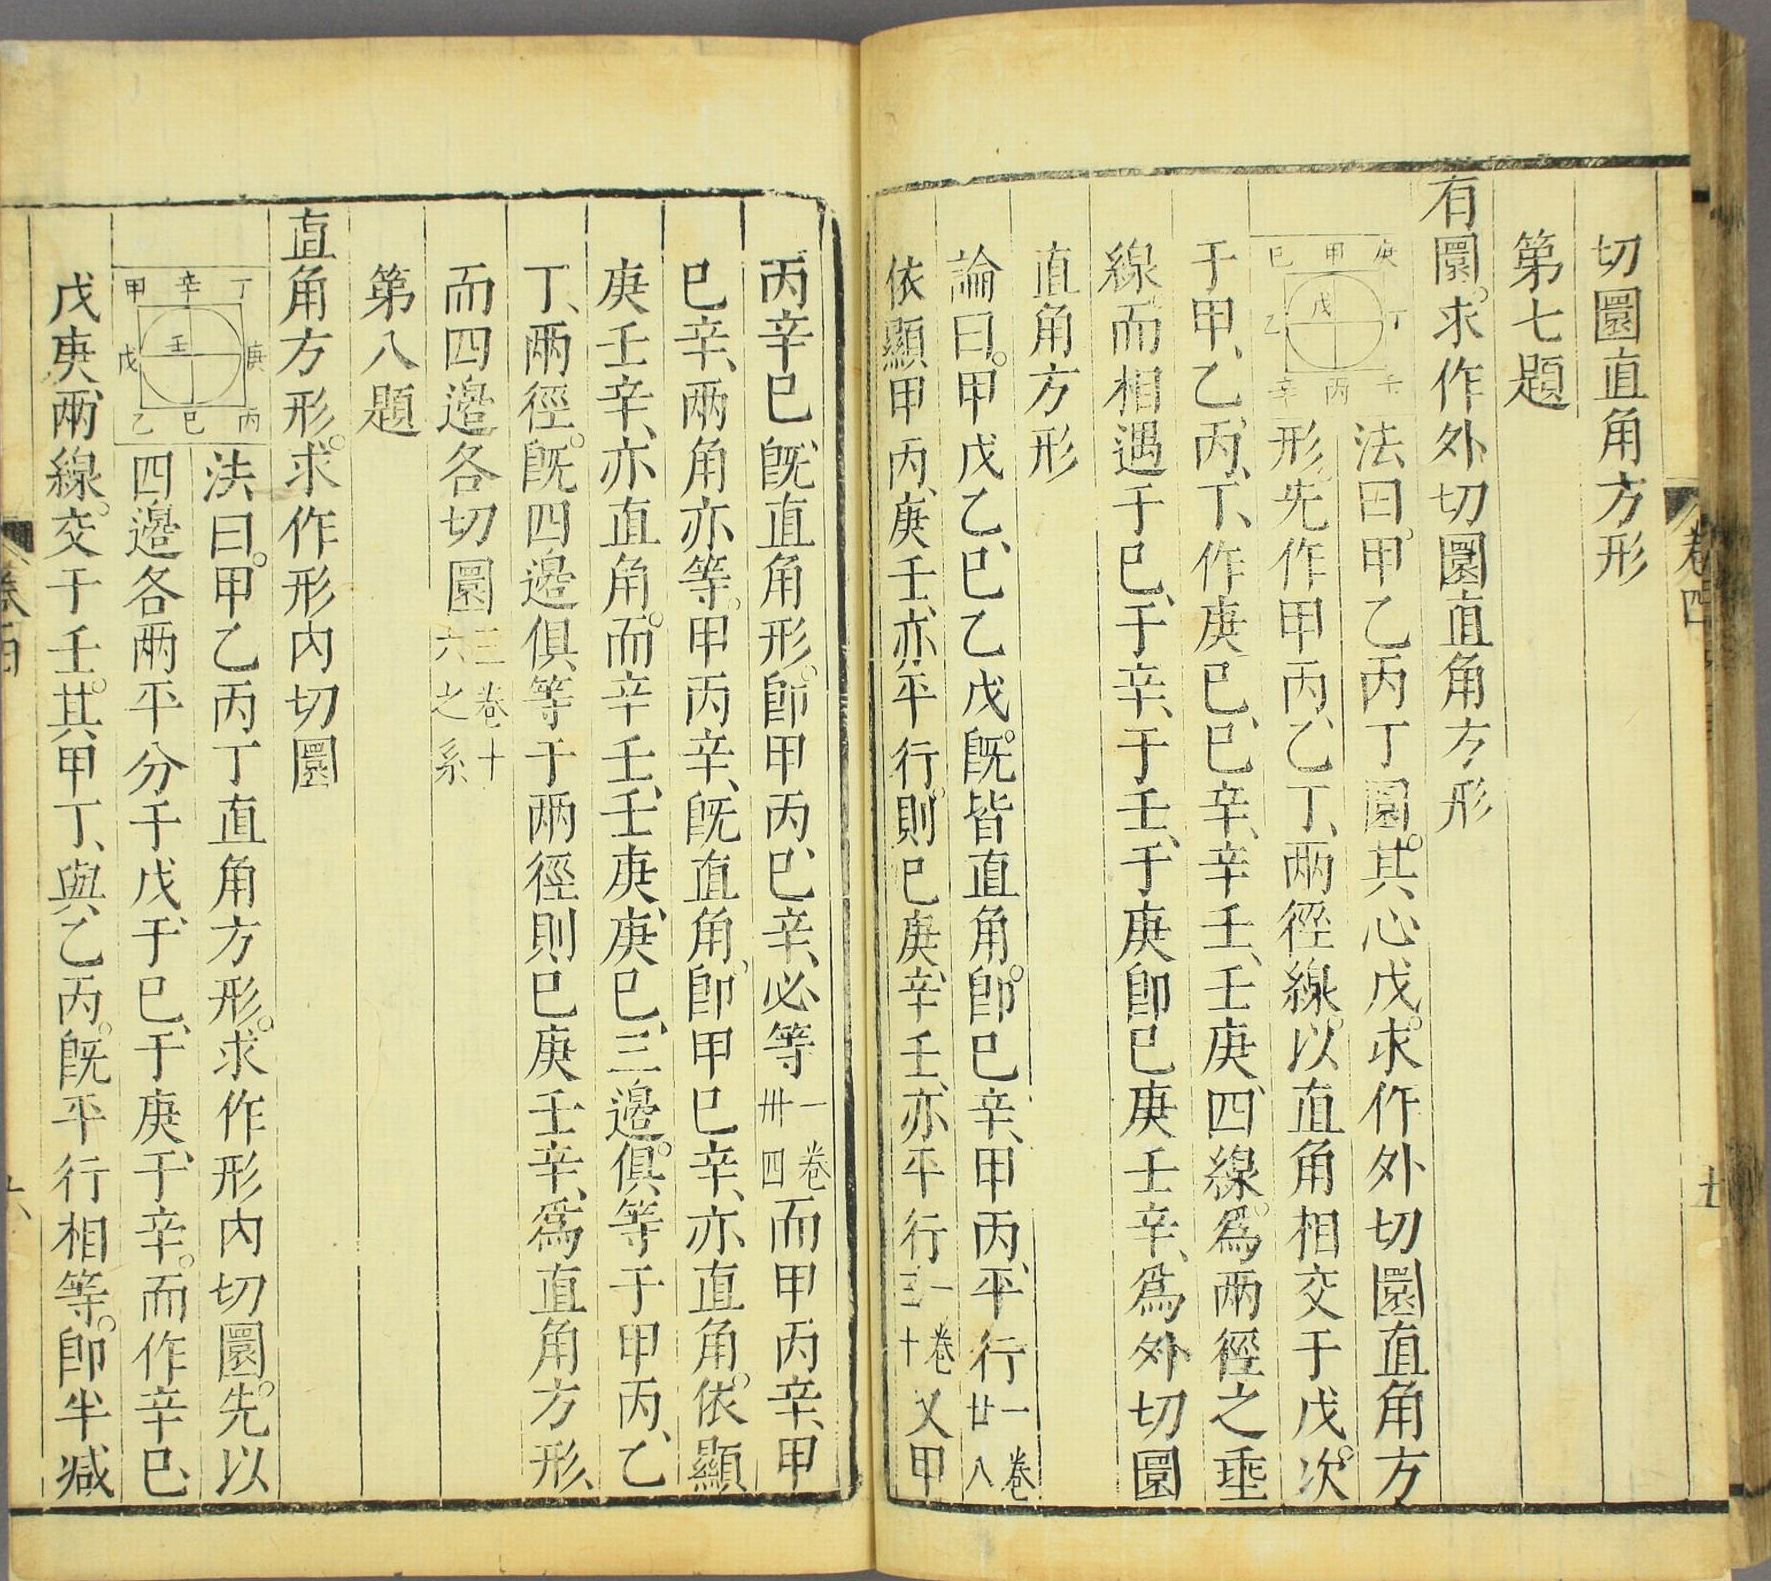 卷四
切圜直角方形
第七題
有圜。求作外切圜直角方形
庚 甲 己
丁 戊 乙
壬 丙 辛
法曰。甲乙丙丁圜。其心戊。求作外切圜直角方
形。先作甲丙、乙丁、兩徑線。以直角相交于戊。次
于甲、乙、丙、丁、作庚己、己辛、辛壬、壬庚、四線。爲兩徑之垂
線。而相遇于己、于辛、于壬、于庚。卽己庚壬辛、爲外切圜
直角方形
論曰。甲戊乙、己乙戊。旣皆直角。卽己辛、甲丙、平行一卷廿八
依顯甲丙、庚壬、亦平行。則己庚、辛壬、亦平行一卷三十又甲
丙辛己、旣直角形。卽甲丙、己辛、必等一卷卅四而甲丙辛、甲
己辛、兩角亦等。甲丙辛、旣直角、卽甲己辛、亦直角。依顯
庚壬辛、亦直角。而辛壬、壬庚、庚己、三邊。俱等于甲丙、乙
丁、兩徑。旣四邊俱等于兩徑則己庚壬辛、爲直角方形、
而四邊各切圜三卷十六之系
第八題
直角方形。求作形內切圜
丁 辛 甲
庚 壬 戊
丙 己 乙
法曰。甲乙丙丁直角方形。求作形內切圜。先以
四邊各兩平分于戊、于己、于庚、于辛。而作辛己、
戊庚、兩線。交于壬。其甲丁、與乙丙。旣平行相等。卽半減